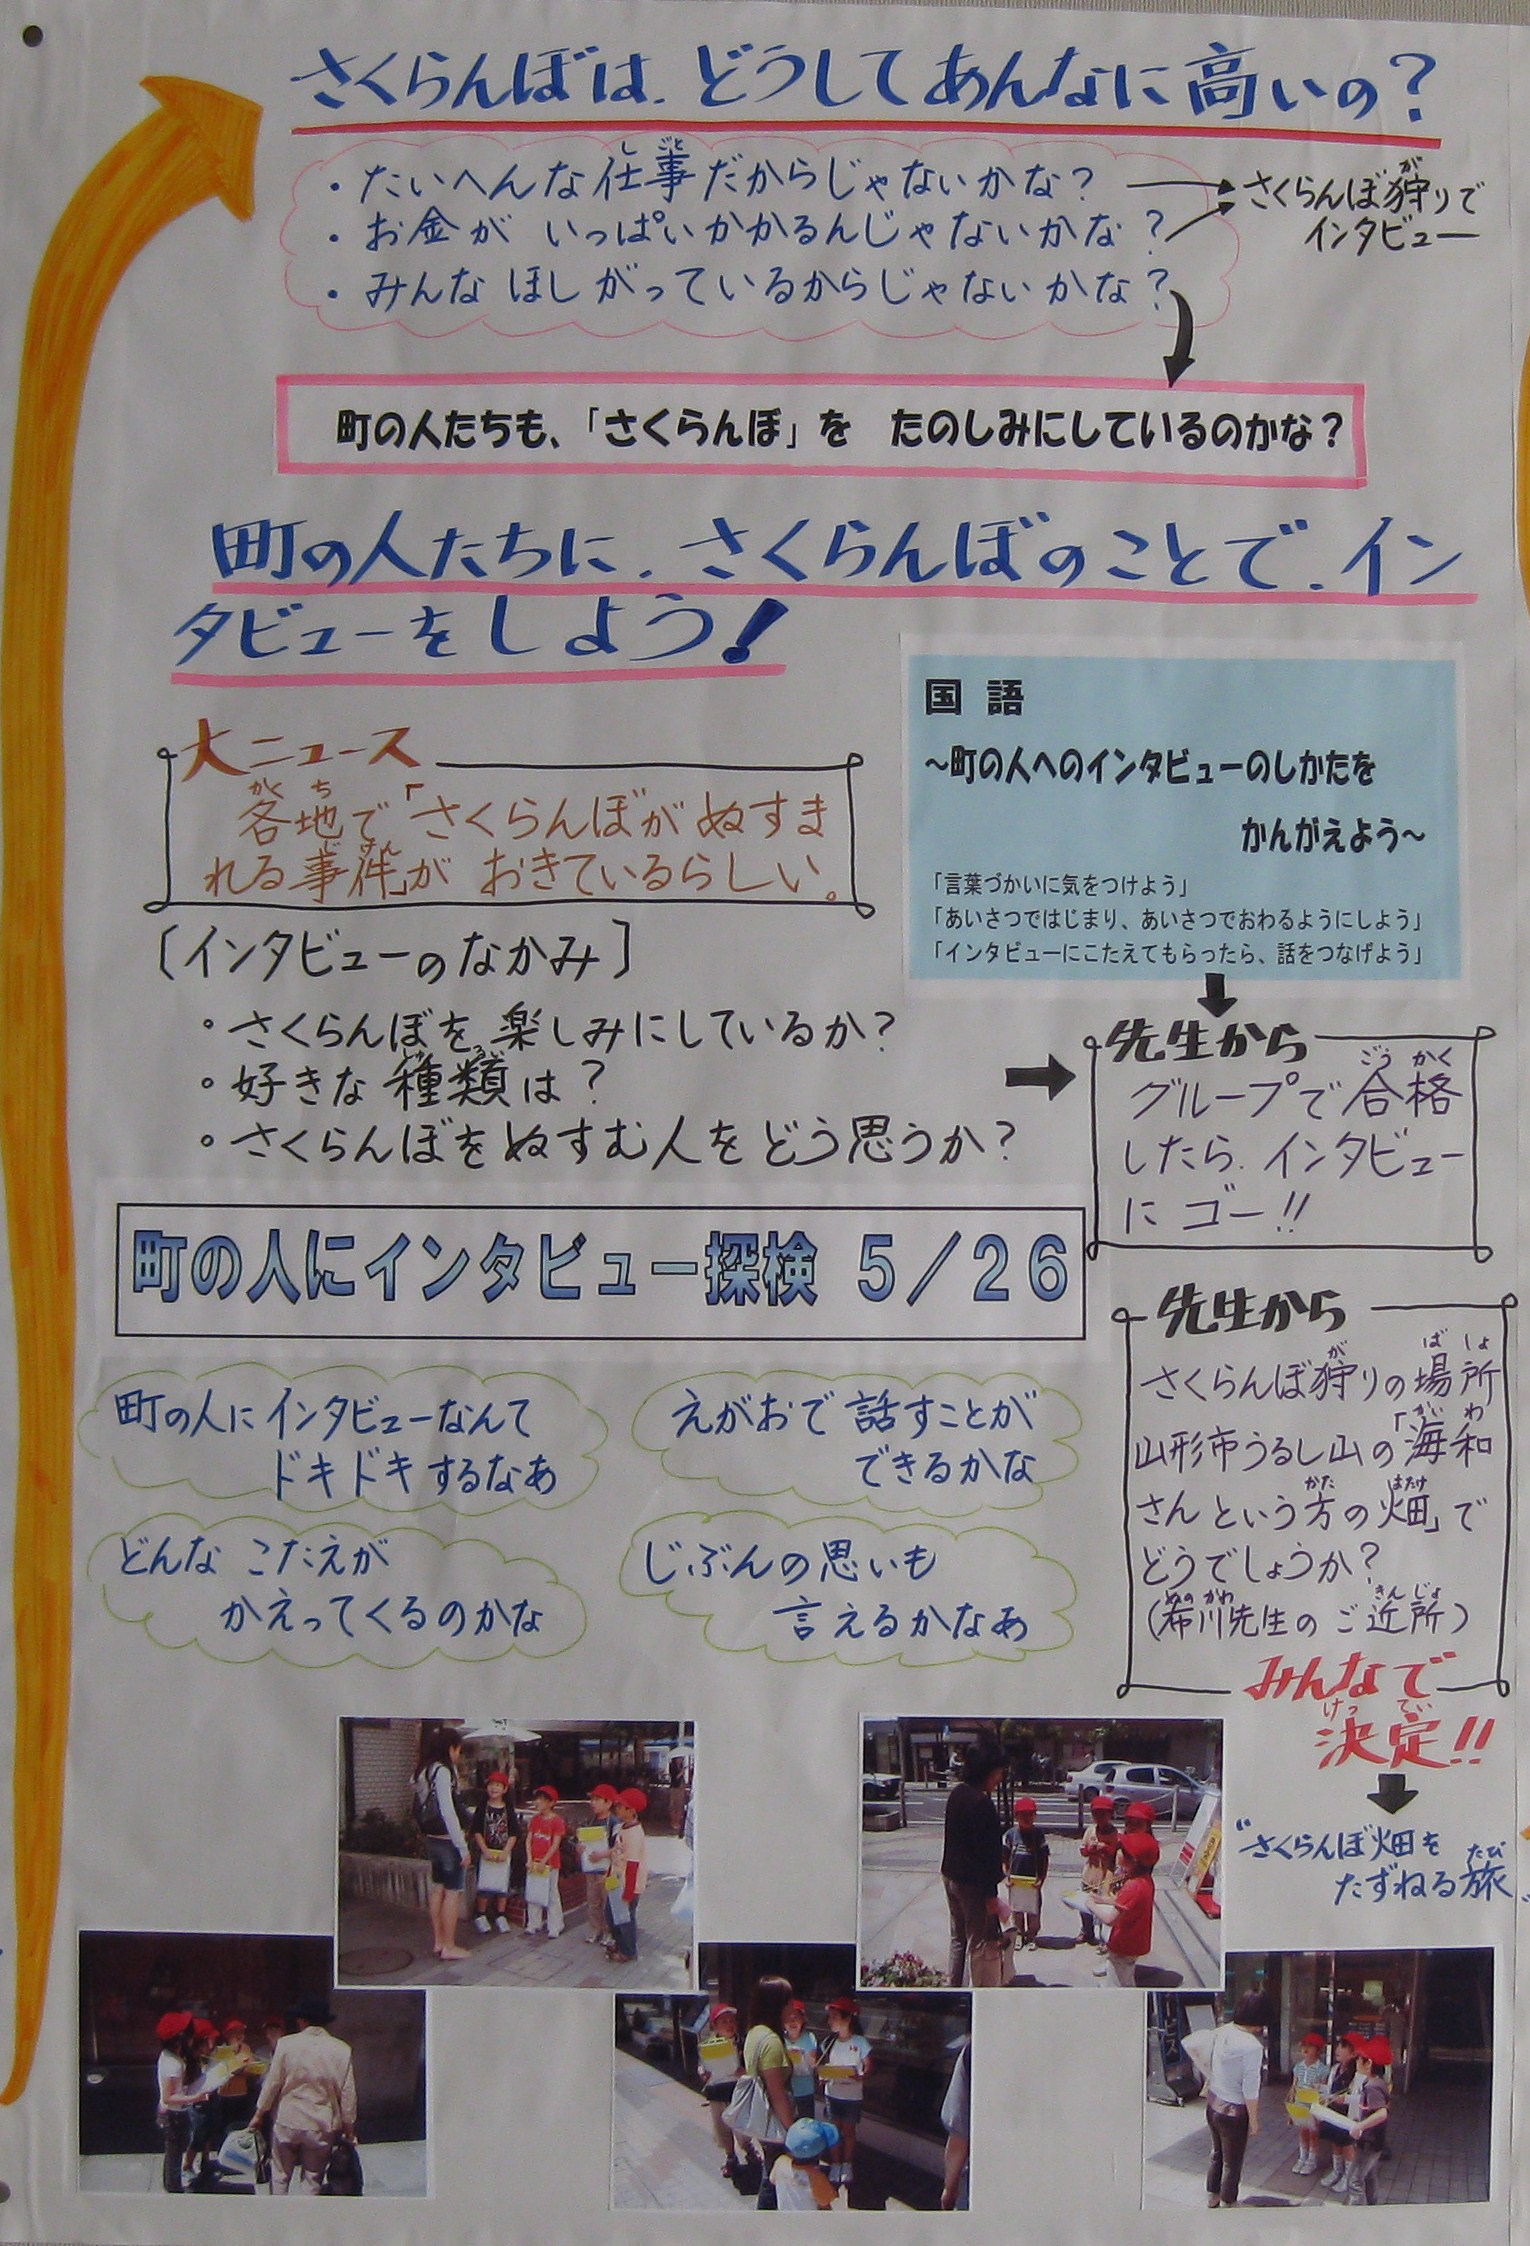 さくらんぼは、どうしてあんなに高いの?
・たいへんな仕事だからじゃないかな?
・お金が いっぱいかかるんじゃないかな?
・みんな ほしがっているからじゃないかな?
さくらんぼ狩りで
インタビュー
町の人たちも、「さくらんぼ」を たのしみにしているのかな?
町の人たちに、さくらんぼのことで、イン
タビューをしよう!
大ニュース
各地で「さくらんぼがぬすま
れる事件」が おきているらしい。
国 語
~町の人へのインタビューのしかたを
かんがえよう~
「言葉づかいに気をつけよう」
「あいさつではじまり、あいさつでおわるようにしよう」
「インタビューにこたえてもらったら、話をつなげよう」
〔インタビューのなかみ〕
・さくらんぼを、楽しみにしているか?
・好きな種類は?
・さくらんぼをぬすむ人をどう思うか?
先生から
グループで合格
したら、インタビュー
にゴー!!
町の人にインタビュー探検 5/26
町の人にインタビューなんて
ドキドキするなあ
えがおで話すことが
できるかな
どんな こたえが
かえってくるのかな
じぶんの思いも
言えるかなあ
先生から
さくらんぼ狩りの場所
山形市うるし山の「海和
さんという方の畑」で
どうでしょうか?
(布川先生のご近所)
みんなで
決定!!
"さくらんぼ畑を
たずねる旅"